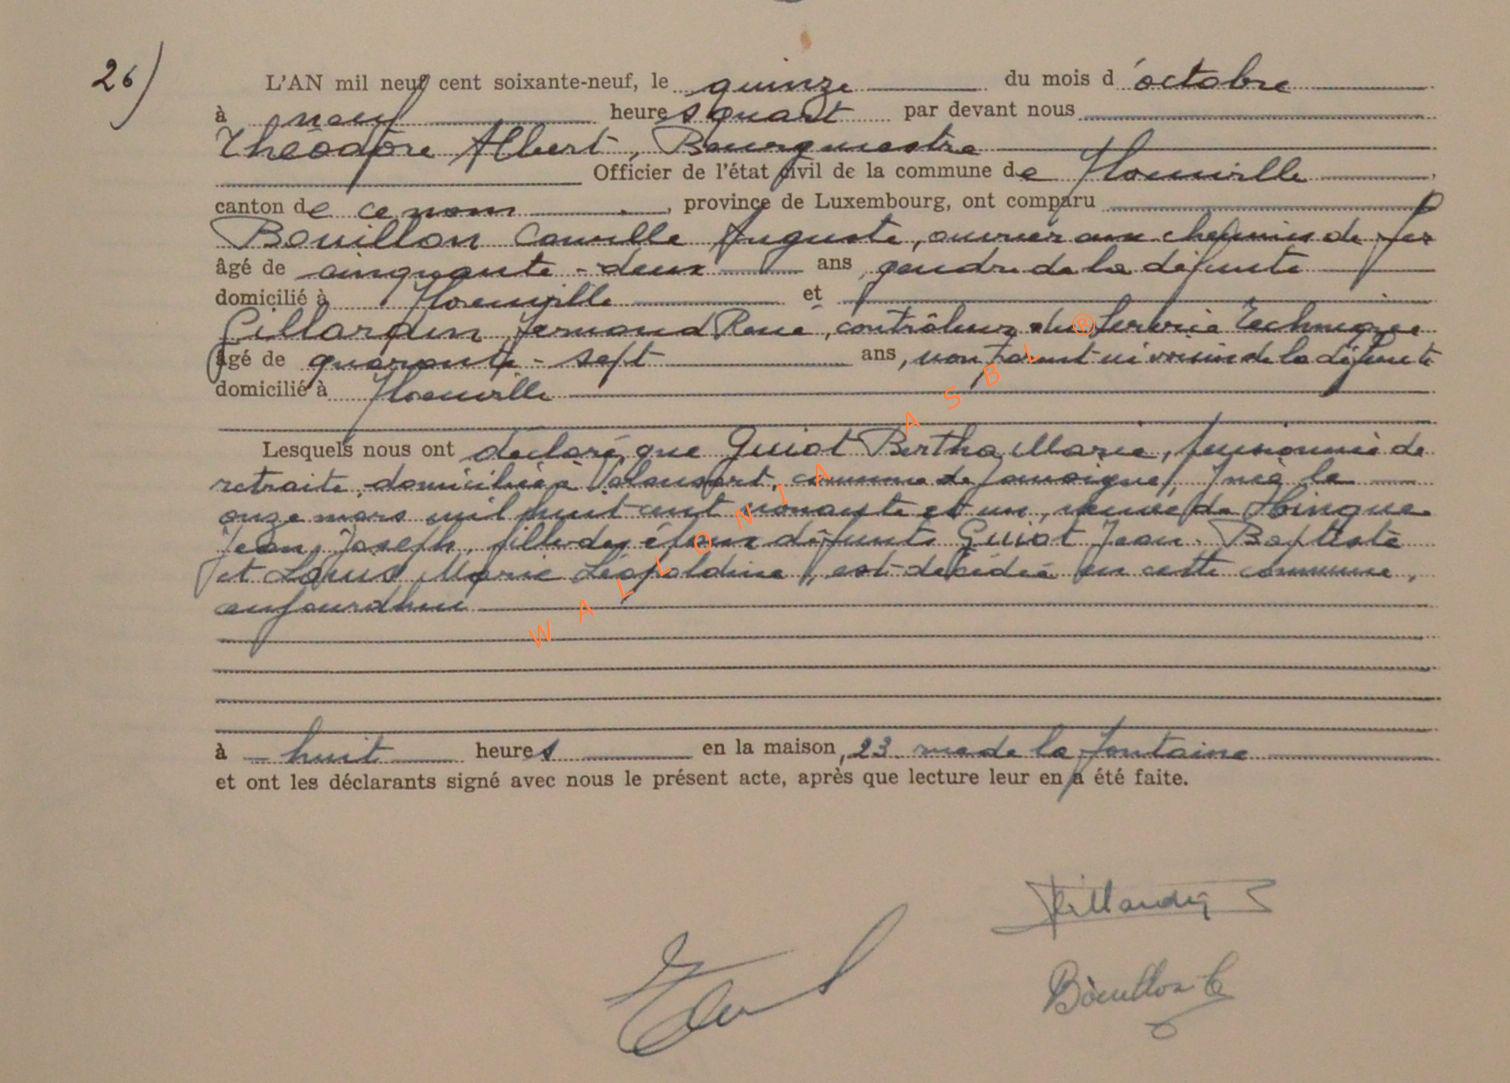 26)
L'AN mil neuf cent soixante-neuf, le quinze du mois d'octobre
à neuf heures quart par devant nous
Théodore Albert, Bourgmestre
Officier de l'état civil de la commune de
canton de ce nom, province de Luxembourg, ont comparu
Bouillon Camille Auguste, ouvrier aux chemins de fer
âgé de cinquante-deux ans, gendre de la défunte
domicilié à et
Gillardin Fernand René, contrôleur du Service Technique
âgé de quarante-sept ans, non parent ni voisin de la défunte
domicilié à
Lesquels nous ont déclaré que Guiot Bertha Marie, pensionnée de
retraite, domiciliée à Valansart, commune de Jamoigne, née le
onze mars mil huit cent nonante et un, veuve de Hinque
Jean, Joseph, fille des époux défunts Guiot Jean-Baptiste
et Louis Marie Léopoldine, est décédée en cette commune,
aujourd'hui
à huit heures en la maison, 23 rue de la fontaine
et ont les déclarants signé avec nous le présent acte, après que lecture leur en a été faite.
Gillardin
Bouillon C
WALLONIA ASBL ®